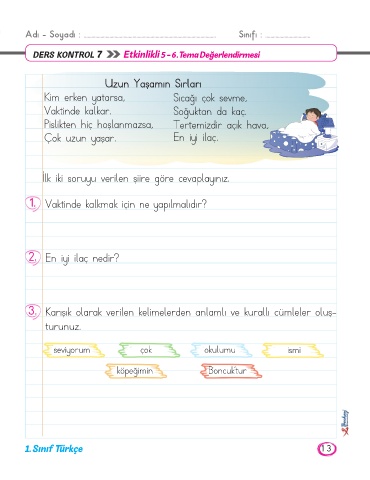 Adı - Soyadı : ................................................ Sınıfı : ................
DERS KONTROL 7 Etkinlikli 5 - 6. Tema Değerlendirmesi
Uzun Yaşamın Sırları
Kim erken yatarsa,
Vaktinde kalkar.
Pislikten hiç hoşlanmazsa,
Çok uzun yaşar.
Sıcağı çok sevme,
Soğuktan da kaç.
Tertemizdir açık hava,
En iyi ilaç.
İlk iki soruyu verilen şiire göre cevaplayınız.
1. Vaktinde kalkmak için ne yapılmalıdır?
2. En iyi ilaç nedir?
3. Karışık olarak verilen kelimelerden anlamlı ve kurallı cümleler oluş-
turunuz.
seviyorum çok okulumu ismi
köpeğimin Boncuk'tur
1. Sınıf Türkçe 13